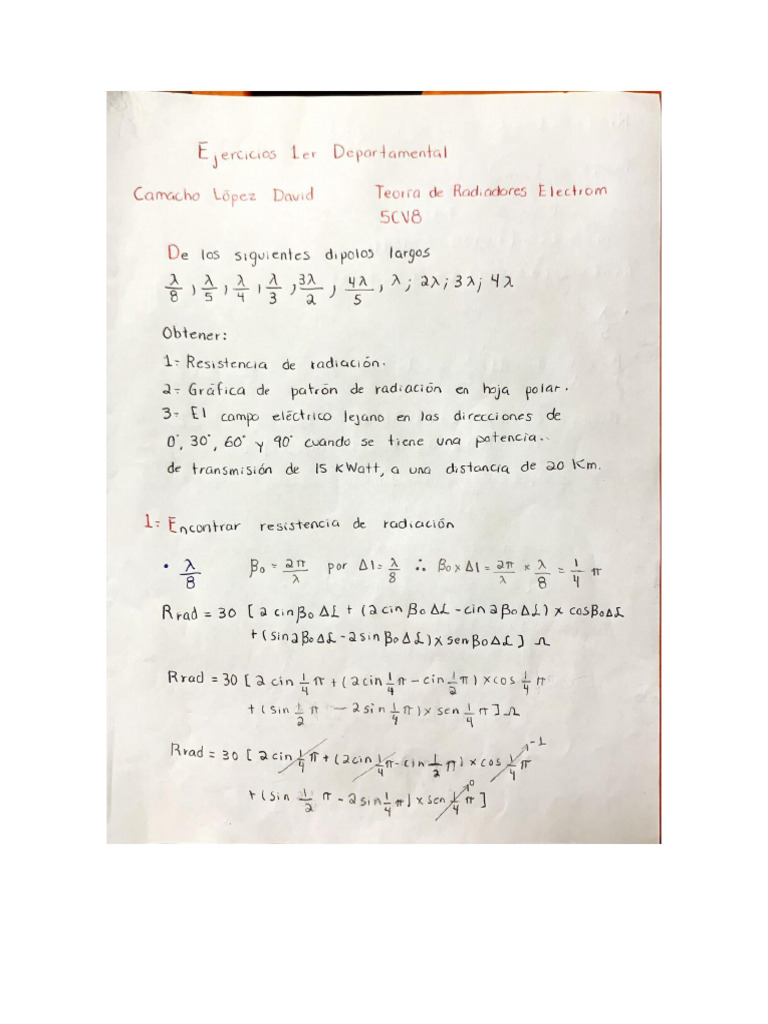 Ejercicios 1er Departamental
Camacho López David Teoría de Radiadores Electrom
5CV8
De los siguientes dipolos largos
λ/8, λ/5, λ/4, λ/3, 3λ/2, 4λ/5, λ; 2λ; 3λ; 4λ
Obtener:
1= Resistencia de radiación.
2= Gráfica de patrón de radiación en hoja polar.
3= El campo eléctrico lejano en las direcciones de
0°, 30°, 60° y 90° cuando se tiene una potencia..
de transmisión de 15 KWatt, a una distancia de 20 Km.
1= Encontrar resistencia de radiación
• λ/8 β₀ = 2π/λ por Δl = λ/8 ∴ β₀ x Δl = 2π/λ x λ/8 = 1/4 π
Rrad = 30 [ 2 cin β₀ ΔL + (2 cin β₀ ΔL - cin 2 β₀ ΔL) x cos β₀ ΔL
+ (sin 2 β₀ ΔL - 2 sin β₀ ΔL) x sen β₀ ΔL ] Ω
Rrad = 30 [ 2 cin 1/4 π + (2 cin 1/4 π - cin 1/2 π) x cos 1/4 π
+ (sin 1/2 π - 2 sin 1/4 π) x sen 1/4 π ] Ω
Rrad = 30 [ 2 cin 1/4 π + (2 cin 1/4 π - cin 1/2 π) x cos 1/4 π -1
+ (sin 1/2 π - 2 sin 1/4 π) x sen 1/4 π 0 ]